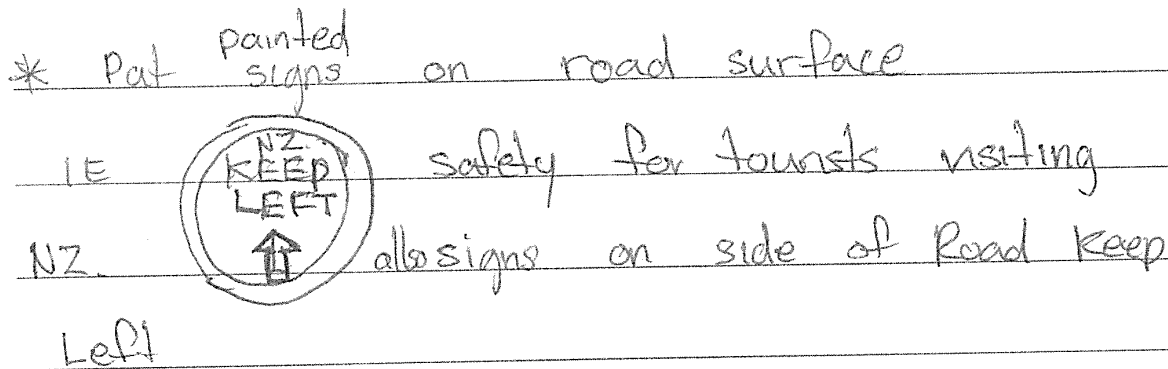 * Pat painted signs on road surface
IE NZ. KEEP LEFT safety for tourists visiting
NZ. also signs on side of Road Keep
Left